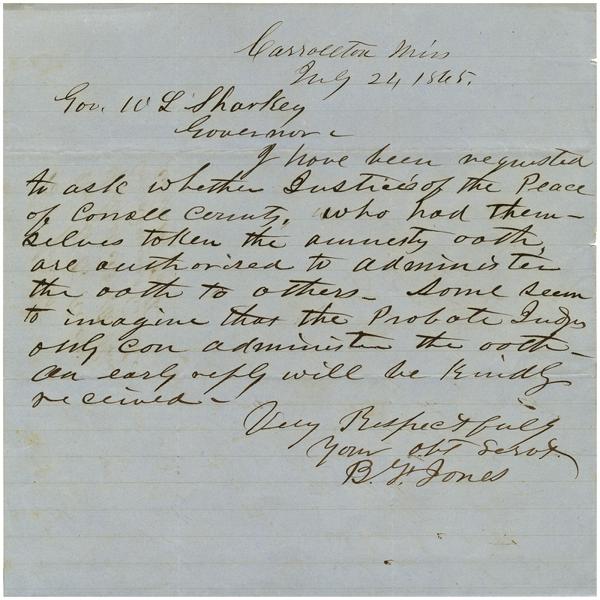 Carrollton Miss
July 24 1865.
Gov. W L Sharkey
Governor
I have been requested
to ask whether Justices of the Peace
of Carroll County, who had them-
selves taken the amnesty oath,
are authorised to administer
the oath to others - Some seem
to imagine that the Probate Judge
only can administer the oath -
An early reply will be kindly
received -
Very Respectfully
Your obt servt
B. F. Jones